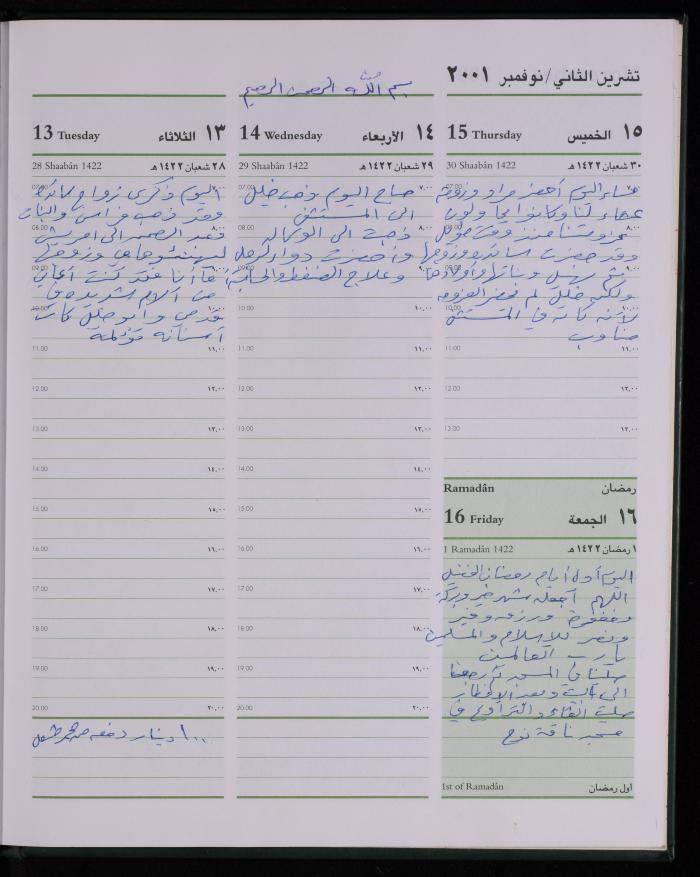 تشرين الثاني/نوفمبر ٢٠٠١
بسم الله الرحمن الرحيم
13 Tuesday الثلاثاء ١٣
28 Shaabân 1422 ٢٨ شعبان ١٤٢٢ هـ
07.00 ٧,٠٠
اليوم ذكرى زواج
وقد ذهب فراس والبنات
08.00 ٨,٠٠
وعبد الرحمن الى
09.00 ٩,٠٠
أما أنا فقد كنت أعاني
من آلام شديدة في
10.00 ١٠,٠٠
قدمي وأبو خليل كانت
أسنانه تؤلمه
11.00 ١١,٠٠
12.00 ١٢,٠٠
13.00 ١٣,٠٠
14.00 ١٤,٠٠
15.00 ١٥,٠٠
16.00 ١٦,٠٠
17.00 ١٧,٠٠
18.00 ١٨,٠٠
19.00 ١٩,٠٠
20.00 ٢٠,٠٠
١٠٠ دينار دفعه من
14 Wednesday الأربعاء ١٤
29 Shaabân 1422 ٢٩ شعبان ١٤٢٢ هـ
07.00 ٧,٠٠
صباح اليوم ذهب خليل
الى المستشفى
08.00 ٨,٠٠
ذهبت الى الوكالة
وأحضرت دواء لرجلي
09.00 ٩,٠٠
وعلاج الضغط
10.00 ١٠,٠٠
11.00 ١١,٠٠
12.00 ١٢,٠٠
13.00 ١٣,٠٠
14.00 ١٤,٠٠
15.00 ١٥,٠٠
16.00 ١٦,٠٠
17.00 ١٧,٠٠
18.00 ١٨,٠٠
19.00 ١٩,٠٠
20.00 ٢٠,٠٠
15 Thursday الخميس ١٥
30 Shaabân 1422 ٣٠ شعبان ١٤٢٢ هـ
07.00 ٧,٠٠
مساء اليوم أحضر مراد وزوجته
عشاء لنا وكانوا
08.00 ٨,٠٠
وقد حضرت وزوجها
09.00 ٩,٠٠
وبناتها وأولادها
ولكن خليل لم يحضر العزومة
10.00 ١٠,٠٠
لأنه كان في المستشفى
مناوب
11.00 ١١,٠٠
12.00 ١٢,٠٠
13.00 ١٣,٠٠
Ramadân رمضان
16 Friday الجمعة ١٦
1 Ramadân 1422 ١ رمضان ١٤٢٢ هـ
اليوم أول أيام رمضان الفضيل
اللهم اجعله شهر خير وبركة
ومغفرة ورزق وخير
ونصر للإسلام والمسلمين
يا رب العالمين
صلينا في المسجد
الى البيت وبعد الإفطار
صليت العشاء والتراويح في
مسجد ناقة نوح
1st of Ramadân أول رمضان